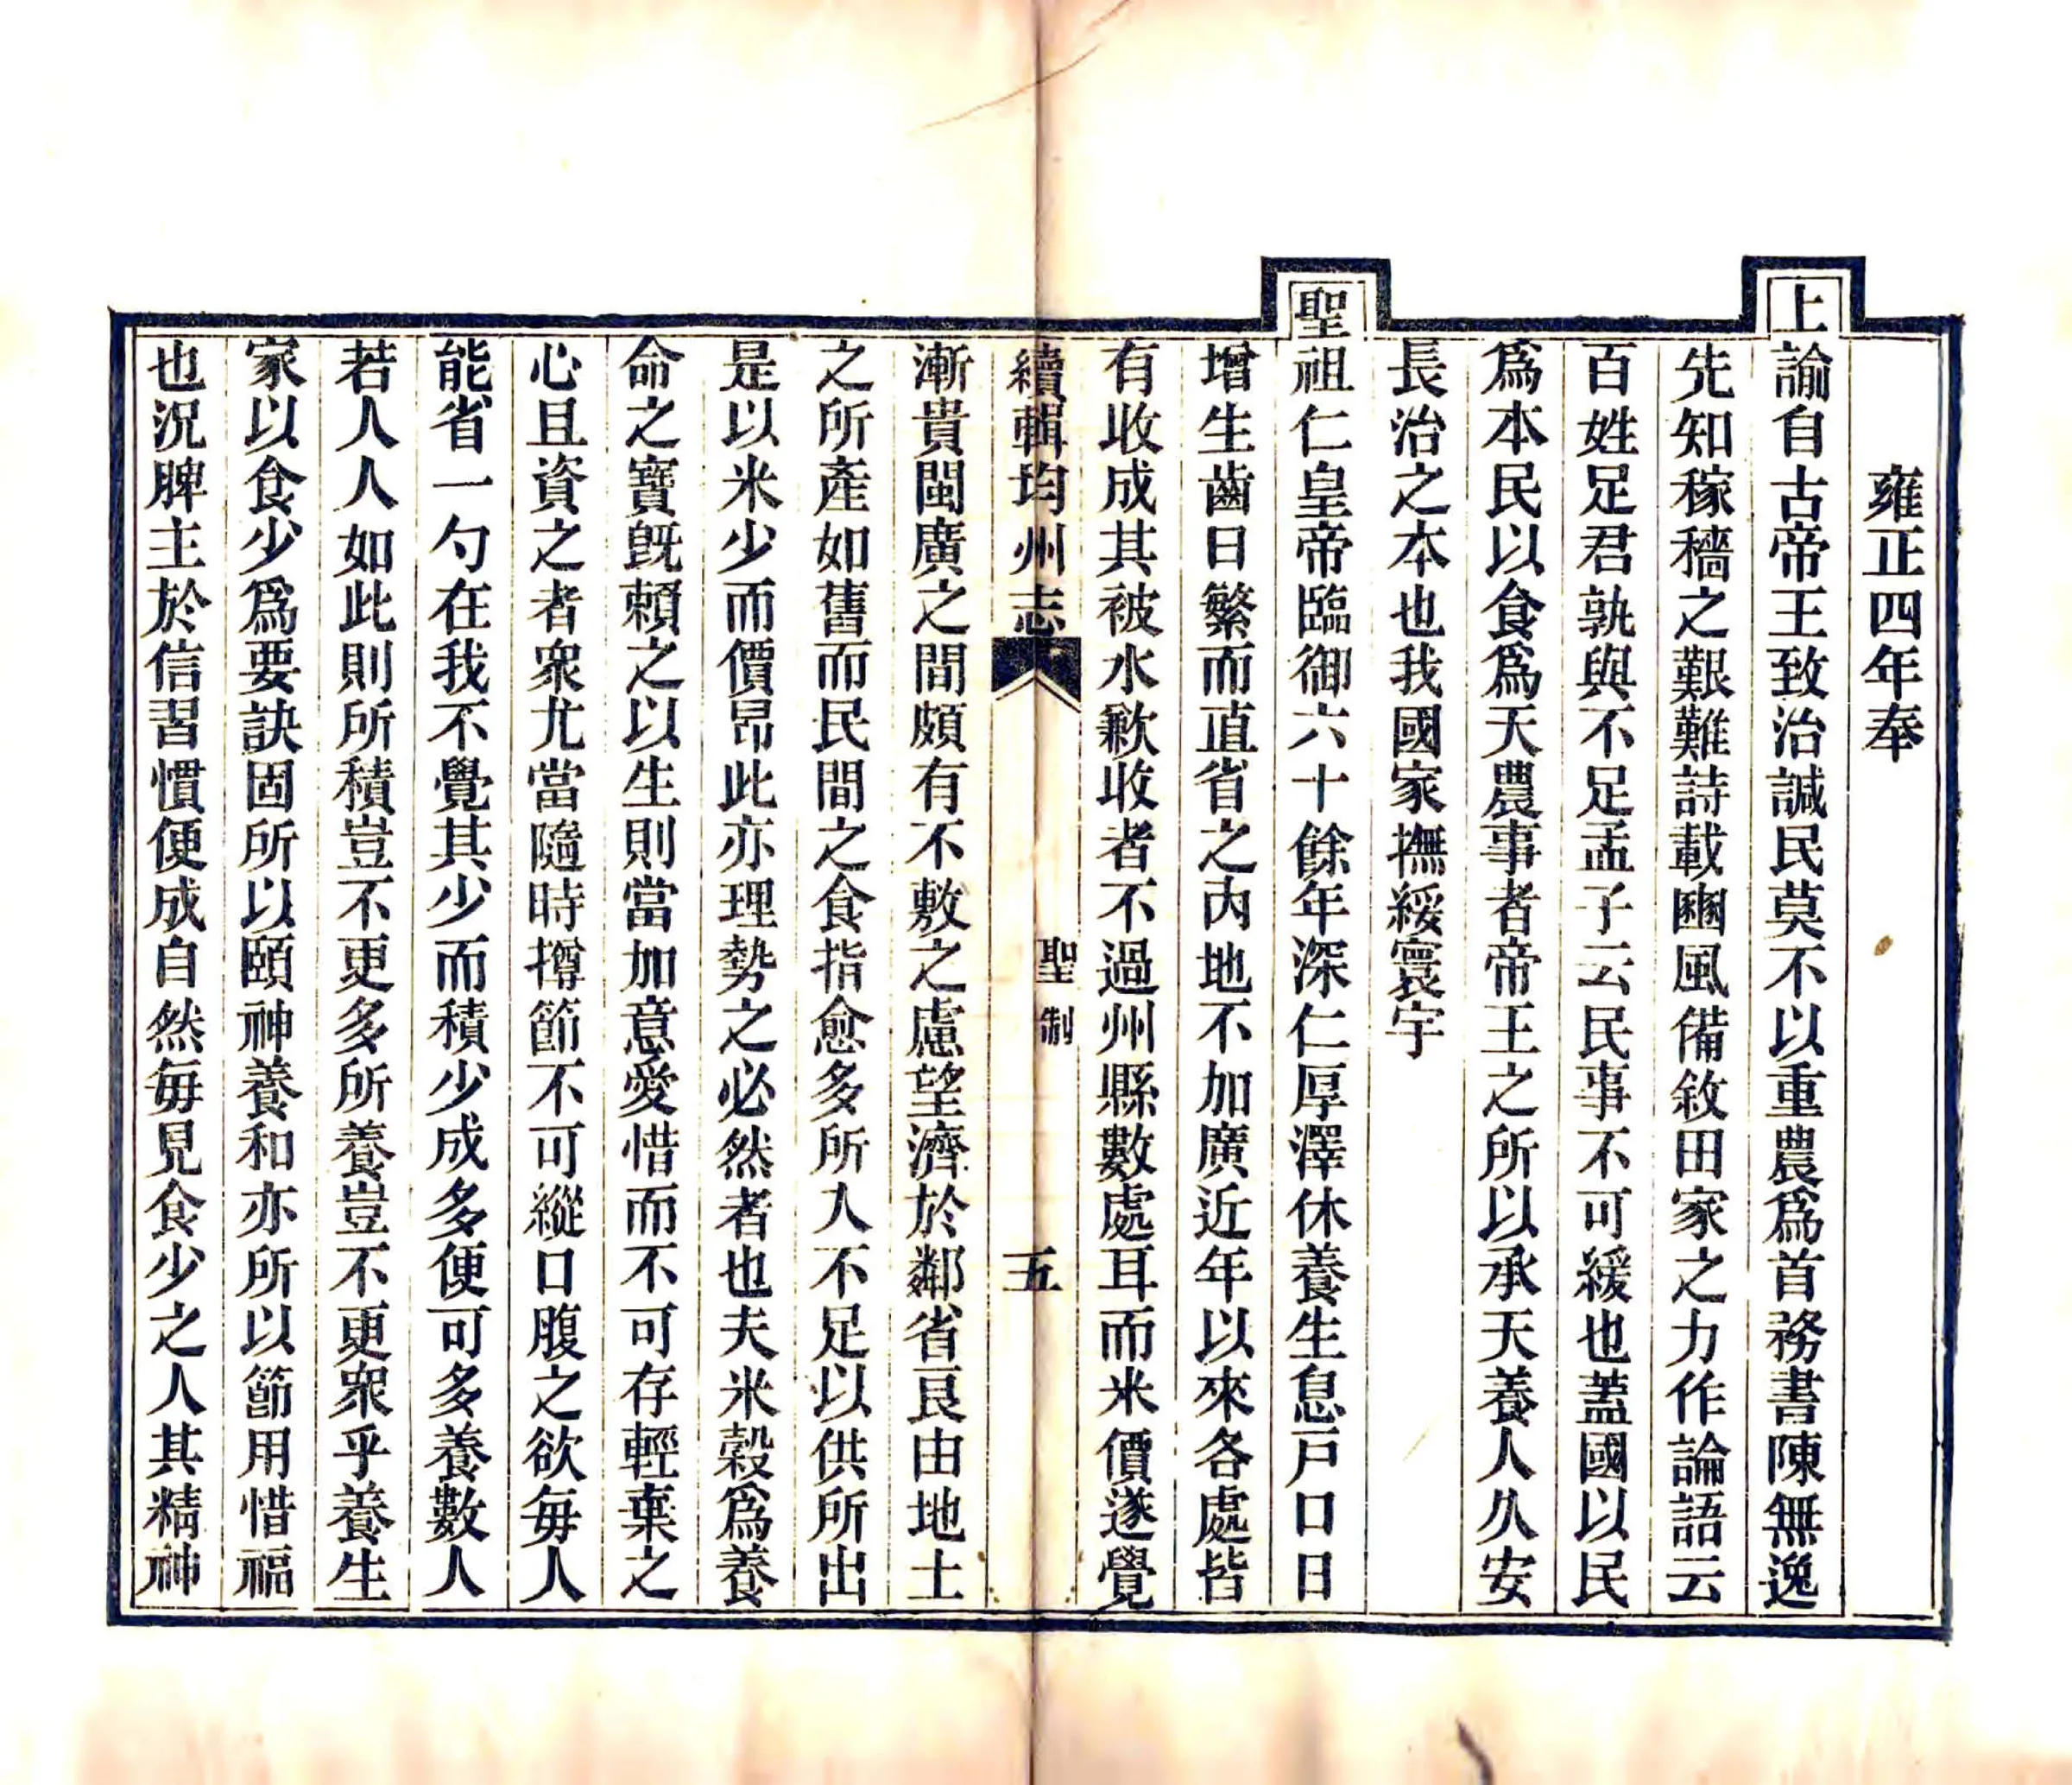 雍正四年奉
上諭自古帝王致治諴民莫不以重農爲首務書陳無逸
先知稼穡之艱難詩載豳風備敘田家之力作論語云
百姓足君孰與不足孟子云民事不可緩也蓋國以民
爲本民以食爲天農事者帝王之所以承天養人久安
長治之本也我國家撫綏寰宇
聖祖仁皇帝臨御六十餘年深仁厚澤休養生息戸口日
增生齒日繁而直省之內地不加廣近年以來各處皆
有收成其被水歉收者不過州縣數處耳而米價遂覺
續輯均州志 聖制 五
漸貴閩廣之間頗有不敷之慮望濟於鄰省良由地土
之所產如舊而民間之食指愈多所人不足以供所出
是以米少而價昂此亦理勢之必然者也夫米穀爲養
命之寶旣賴之以生則當加意愛惜而不可存輕棄之
心且資之者衆尤當隨時撙節不可縱口腹之欲每人
能省一勺在我不覺其少而積少成多便可多養數人
若人人如此則所積豈不更多所養豈不更衆乎養生
家以食少爲要訣固所以頤神養和亦所以節用惜福
也況脾主於信習慣便成自然每見食少之人其精神